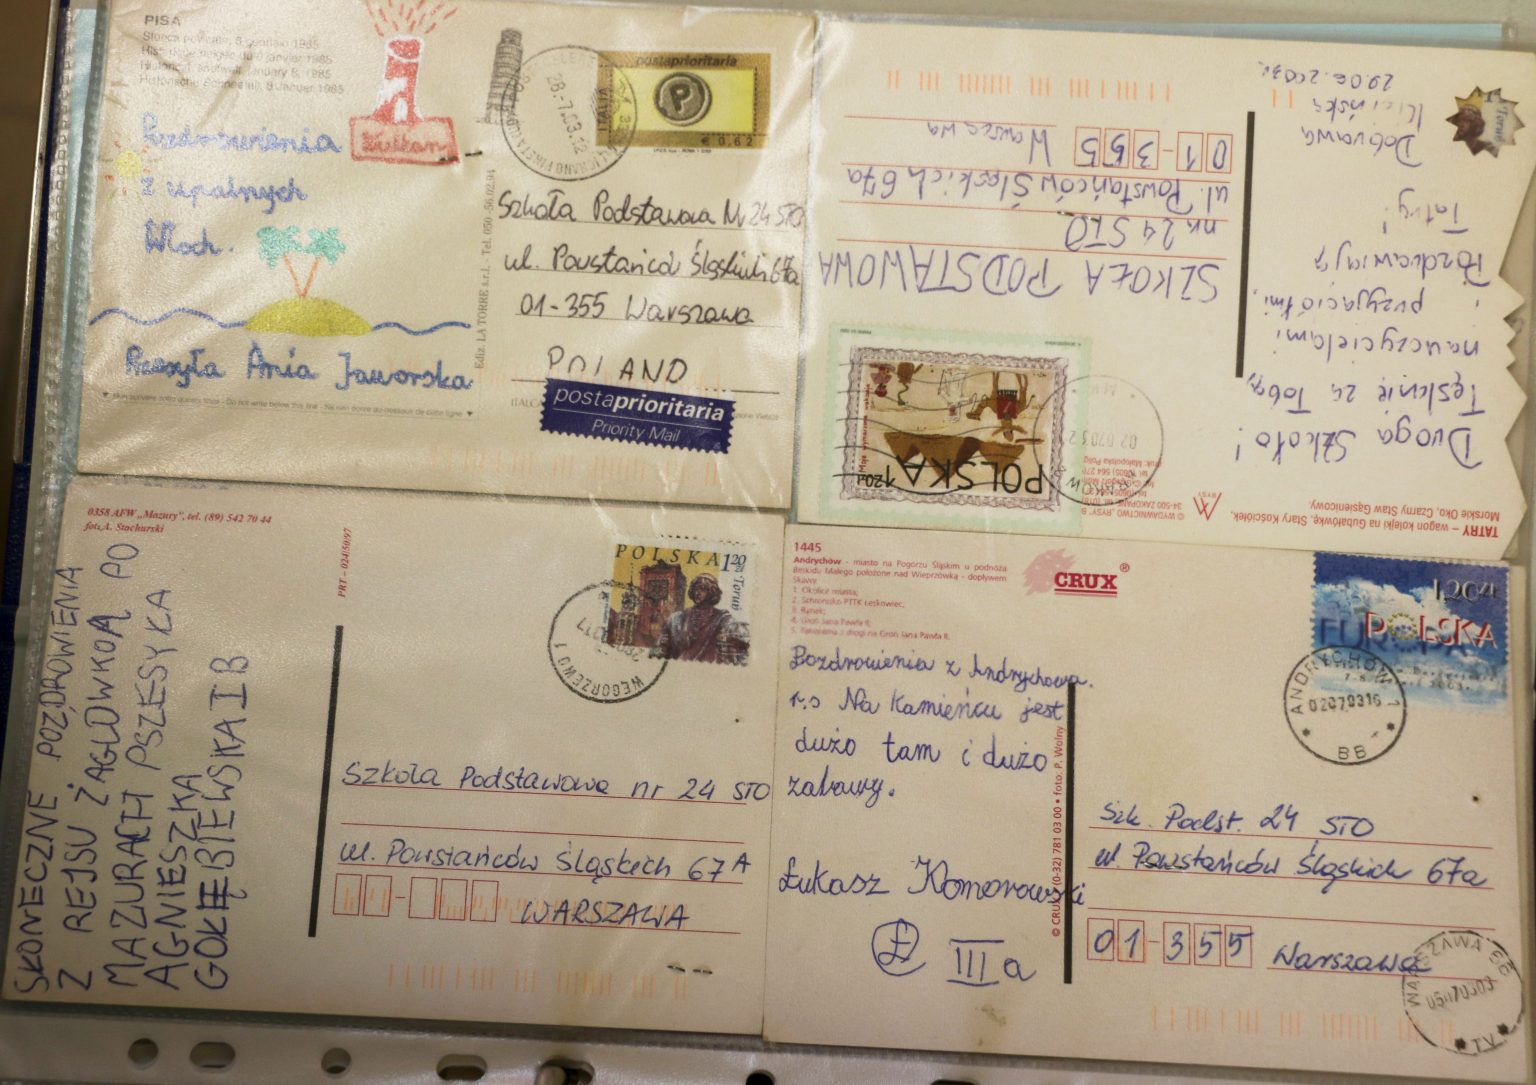 PISA
Pozdrowienia
z upalnych
Włoch.
Wulkan
Przesyła Ania Jaworska
Ediz. LA TORRE s.r.l. Tel. 050
postaprioritaria
ITALIA
P
€ 0,62
28.-7.03.12
Szkoła Podstawowa Nr 24 STO
ul. Powstańców Śląskich 67a
01-355 Warszawa
POLAND
postaprioritaria
Priority Mail
TATRY – wagon kolejki na Gubałówkę, Stary Kościółek,
Morskie Oko, Czarny Staw Gąsienicowy
© WYDAWNICTWO "RYSY"
34-500 ZAKOPANE
RYSY
Droga Szkoło!
Tęsknię za Tobą,
nauczycielami
i przyjaciółmi.
Pozdrawiają
Tatry!
Dobrawa
29.06.2003r.
Toruń
POLSKA 120zł
SZKOŁA PODSTAWOWA
nr. 24 STO
ul. Powstańców Śląskich 67a
01-355 Warszawa
0358 AFW „Mazury", tel. (89) 542 70 44
fot. A. Stachurski
PRT - 024/50/97
SKONECZNE POZDROWIENIA
Z REJSU ŻAGLÓWKOĄ PO
MAZURACH PSZESYKA
AGNIESZKA
GOŁĘBIEWSKA IB
POLSKA 120 zł
Toruń
WĘGORZEWO 1
Szkoła Podstawowa nr 24 STO
ul. Powstańców Śląskich 67A
WARSZAWA
1445
Andrychów - miasto na Pogórzu Śląskim u podnóża
Beskidu Małego położone nad Wieprzówką - dopływem
Skawy.
1. Okolice miasta;
2. Schronisko PTTK Leskowiec;
3. Rynek;
4. Groń Jana Pawła II;
5. Panorama z drogi na Groń Jana Pawła II.
CRUX®
Pozdrowienia z Andrychowa.
r.s Na Kamieńcu jest
dużo tam i dużo
zabawy.
Łukasz Komorowski
Ł IIIa
© CRUX (0-32) 781 03 00 • foto. P. Wolny
1,20zł
EUROPA
POLSKA
ANDRYCHÓW 1
02070316
BB
Szk. Podst. 24 STO
ul. Powstańców Śląskich 67a
01-355 Warszawa
WARSZAWA 66